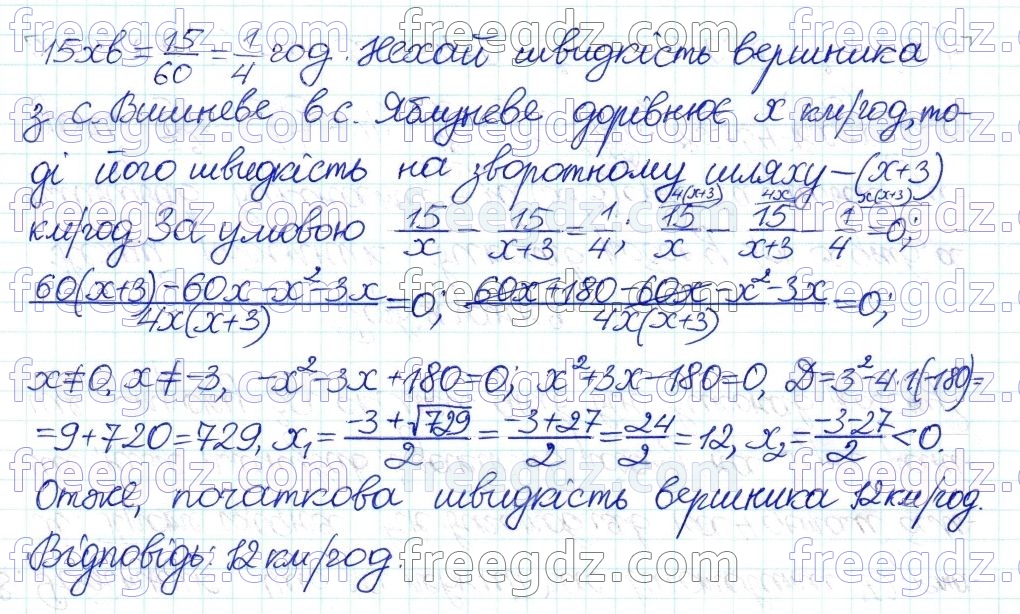 15хв = 15/60 = 1/4 год. Нехай швидкість вершника
з с. Вишневе в с. Яблуневе дорівнює x км/год, то-
ді його швидкість на зворотному шляху – (x+3)
км/год. За умовою 15/x – 15/(x+3) = 1/4; 4(x+3) 15/x – 4x 15/(x+3) – x(x+3) 1/4 = 0;
(60(x+3) – 60x – x² – 3x)/(4x(x+3)) = 0; (60x + 180 – 60x – x² – 3x)/(4x(x+3)) = 0;
x ≠ 0, x ≠ –3, –x² – 3x + 180 = 0; x² + 3x – 180 = 0, Д = 3² – 4·1(–180) =
= 9 + 720 = 729, x₁ = (–3 + √729)/2 = (–3 + 27)/2 = 24/2 = 12, x₂ = (–3–27)/2 < 0.
Отже, початкова швидкість вершника 12 км/год.
Відповідь: 12 км/год.
freegdz.com